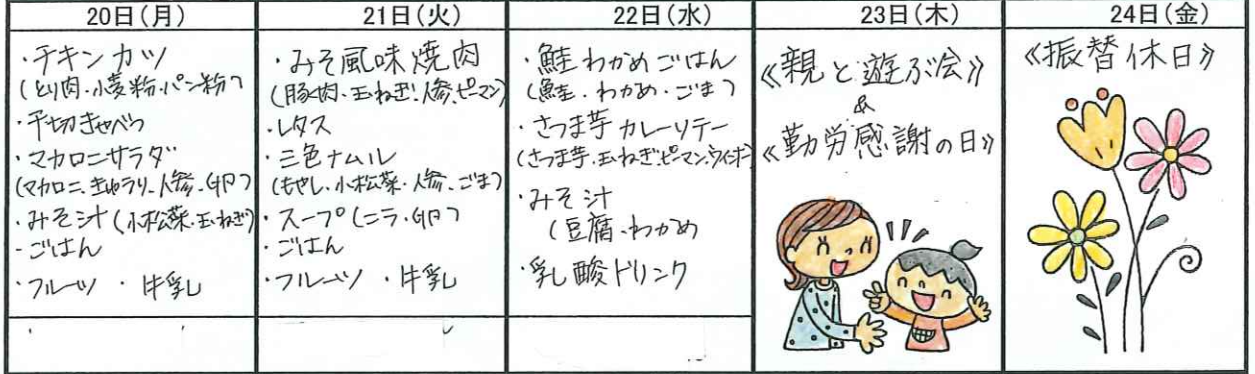 20日(月)
・チキンカツ
(とり肉・小麦粉・パン粉)
・千切きゃべつ
・マカロニサラダ
(マカロニ・きゅうり・人参・卵)
・みそ汁(小松菜・玉ねぎ)
・ごはん
・フルーツ ・牛乳
21日(火)
・みそ風味焼肉
(豚肉・玉ねぎ・人参・ピーマン)
・レタス
・三色ナムル
(もやし・小松菜・人参・ごま)
・スープ(ニラ・卵)
・ごはん
・フルーツ ・牛乳
22日(水)
・鮭わかめごはん
(鮭・わかめ・ごま)
・さつま芋カレーソテー
(さつま芋・玉ねぎ・ピーマン・ウインナー)
・みそ汁
(豆腐・わかめ
・乳酸ドリンク
23日(木)
《親と遊ぶ会》
&
《勤労感謝の日》
24日(金)
《振替休日》